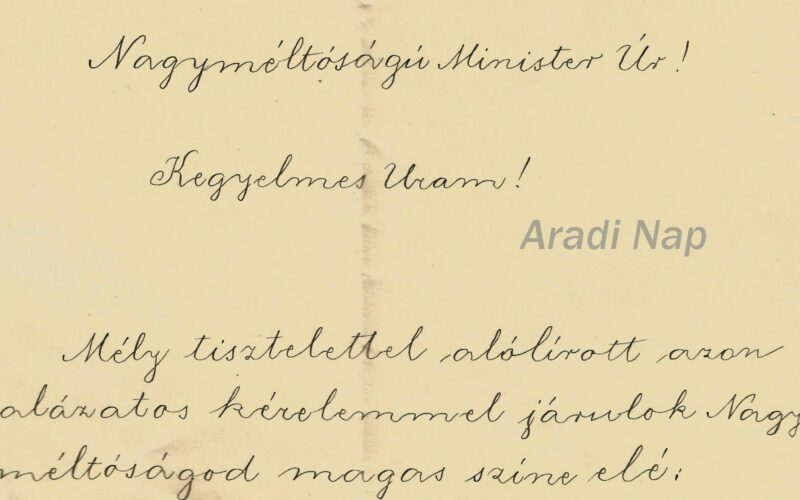 Nagyméltóságú Minister Úr!
Kegyelmes Uram!
Aradi Nap
Mély tisztelettel alólírott azon
alázatos kérelemmel járulok Nagy
méltóságod magas színe elé: